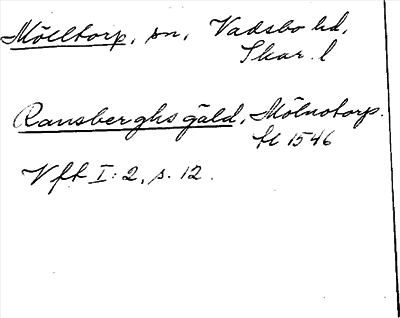 Mölltorp, sn, Vadsbo hd,
Skar. l
Ransberghs gäld, Mölnotorp.
fl 1546
Vft I:2, s. 12.